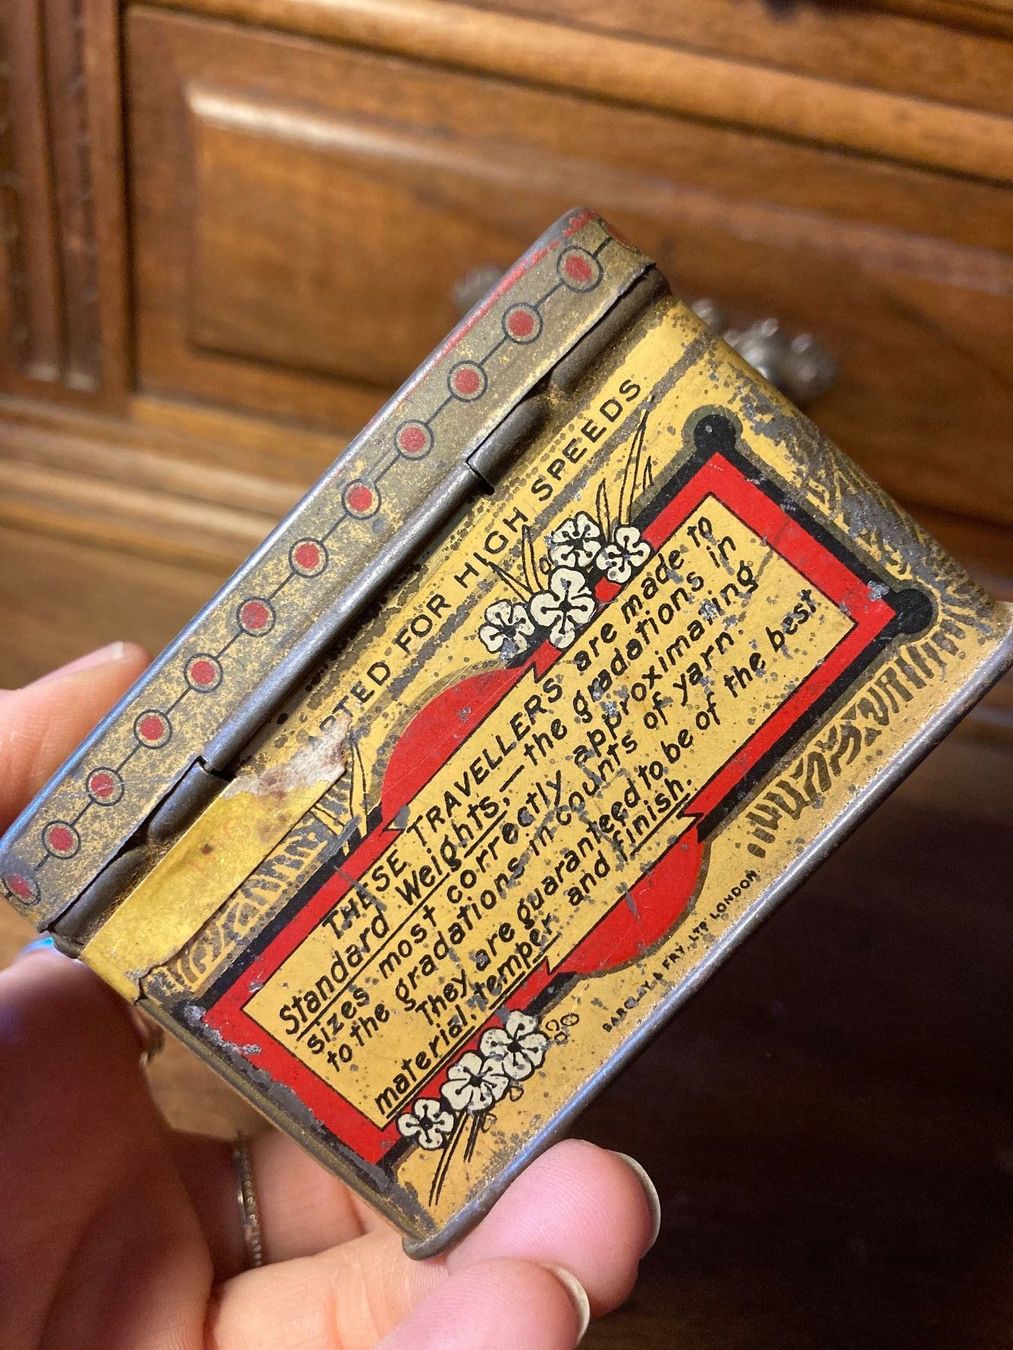 FOR HIGH SPEEDS
THESE TRAVELLERS are made to
Standard Weights,—the gradations in
sizes most correctly approximating
to the gradations in counts of yarn.
They are guaranteed to be of the best
material, temper and finish.
BARCLAY & FRY, LTD LONDON